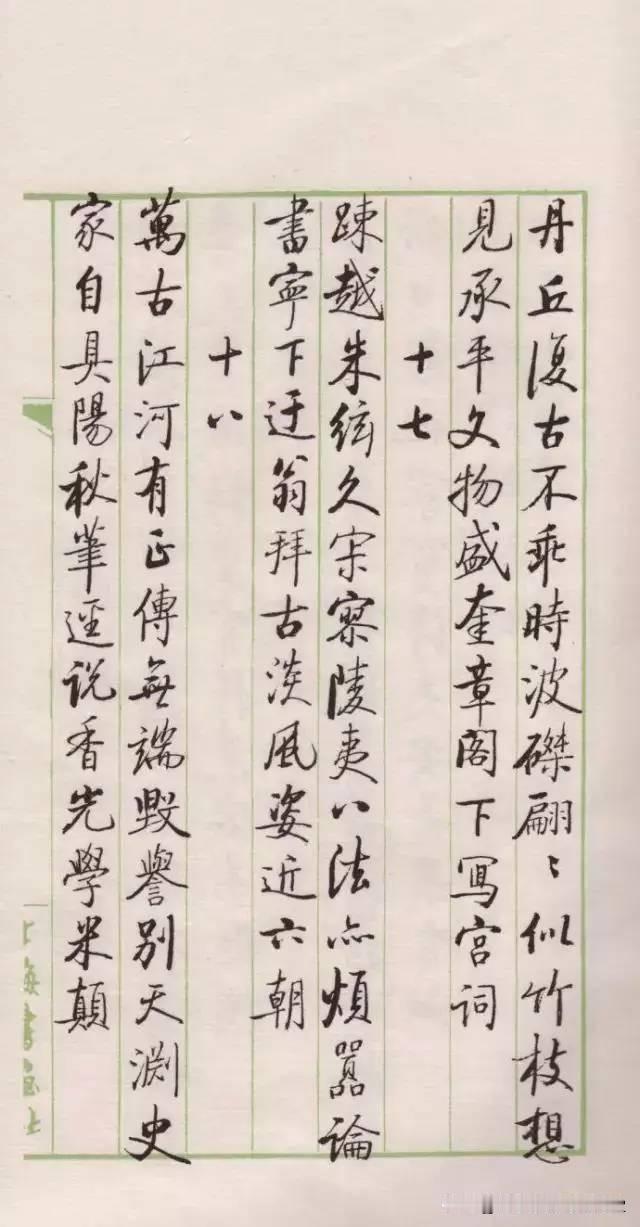 丹丘復古不乖時波磔翩〻似竹枝想
見承平文物盛奎章閣下寫宮詞
十七
疎越朱絃久寂寥陵夷八法亦煩囂論
書寧下迂翁拜古淡風姿近六朝
十八
萬古江河有正傳無端毀譽別天淵史
家自具陽秋筆逕说香光學米顛
上海書畫社